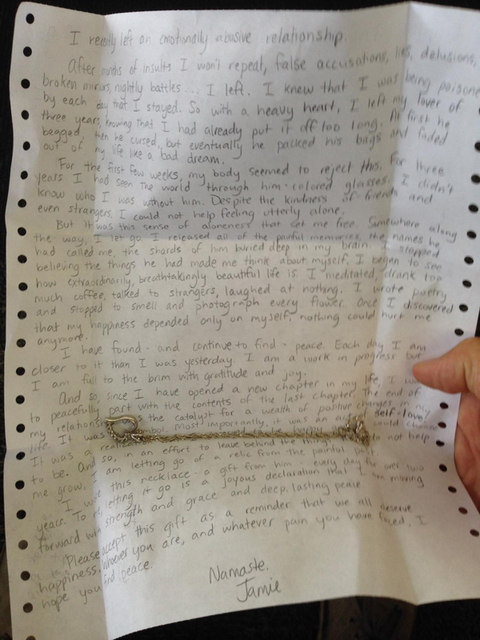 I recently left an emotionally abusive relationship.
After months of insults I won't repeat, false accusations, lies, delusions,
broken nights, nightly battles... I left. I knew that I was being poisoned
by each day that I stayed. So with a heavy heart, I left my lover of
three years, knowing that I had already put it off too long. At first he
begged, then he cursed, but eventually he packed his bags and faded
out of my life like a bad dream.
For the first few weeks, my body seemed to reject this. For three
years I had seen the world through him-colored glasses. I didn't
know who I was without him. Despite the kindness of friends and
even strangers, I could not help feeling utterly alone.
But it was this sense of aloneness that set me free. Somewhere along
the way, I let go. I released all of the painful memories, the names he
had called me, the shards of him buried deep in my brain. I stopped
believing the things he had made me think about myself, I began to see
how extraordinarily, breathtakingly beautiful life is. I meditated, drank too
much coffee, talked to strangers, laughed at nothing. I wrote poetry
and stopped to smell and photograph every flower. Once I discovered
that my happiness depended only on myself, nothing could hurt me
anymore.
I have found - and continue to find - peace. Each day I am
closer to it than I was yesterday. I am a work in progress but
I am full to the brim with gratitude and joy.
And so, since I have opened a new chapter in my life, I want
to peacefully part with the contents of the last chapter. The end of
my relationship the catalyst for a wealth of positive changes in my
life. It was self-love.
It was a too. Most importantly, it was could choose
to be. And so, in an effort to leave behind the thing do not help
me grow, I am letting go of a relic from the painful past.
I wore this necklace, a gift from him every day for over two
years. To me, letting it go is a joyous declaration that I am moving
forward with strength and grace and deep, lasting peace.
Please accept this gift as a reminder that we all deserve
happiness. Whoever you are, and whatever pain you have faced, I
hope you find peace.
Namaste,
Jamie